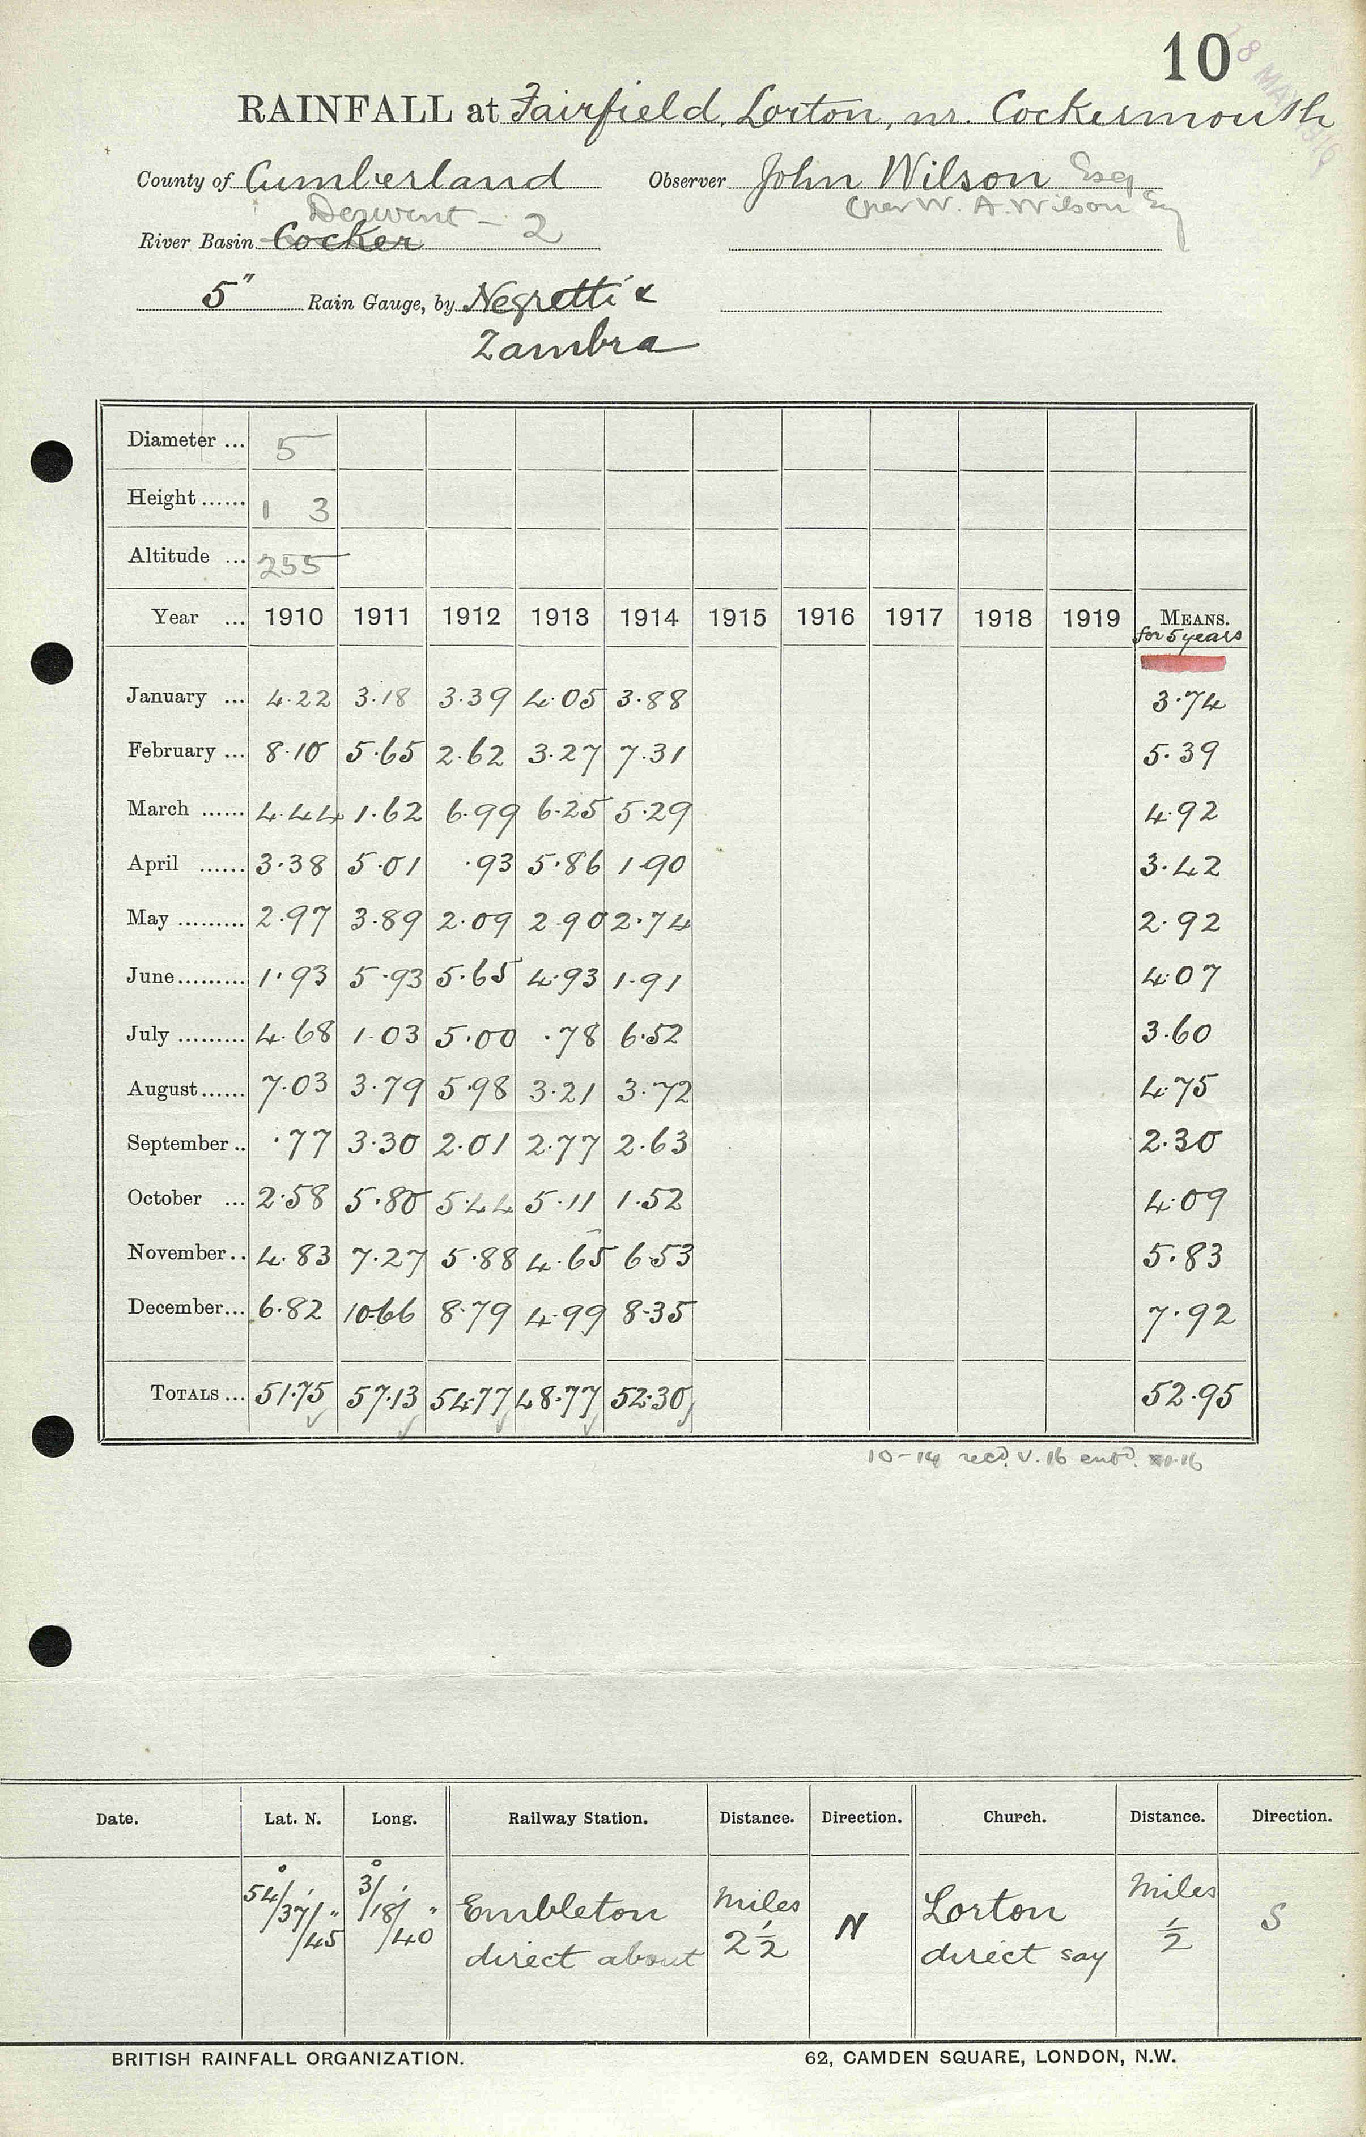 10
18 MAY 1916
RAINFALL at Fairfield, Lorton, nr. Cockermouth
County of Cumberland Observer John Wilson Esq
Derwent - 2 (per W. A. Wilson Esq
River Basin Cocker
5" Rain Gauge, by Negretti &
Zambra
Diameter ... 5
Height ...... 1 3
Altitude ... 255
Year ... 1910 1911 1912 1913 1914 1915 1916 1917 1918 1919 MEANS.
for 5 years
January ... 4.22 3.18 3.39 4.05 3.88 3.74
February ... 8.10 5.65 2.62 3.27 7.31 5.39
March ...... 4.44 1.62 6.99 6.25 5.29 4.92
April ...... 3.38 5.01 .93 5.86 1.90 3.42
May ......... 2.97 3.89 2.09 2.90 2.74 2.92
June......... 1.93 5.93 5.65 4.93 1.91 4.07
July ......... 4.68 1.03 5.00 .78 6.52 3.60
August...... 7.03 3.79 5.98 3.21 3.72 4.75
September .. .77 3.30 2.01 2.77 2.63 2.30
October ... 2.58 5.80 5.44 5.11 1.52 4.09
November .. 4.83 7.27 5.88 4.65 6.53 5.83
December... 6.82 10.66 8.79 4.99 8.35 7.92
TOTALS ... 51.75 57.13 54.77 48.77 52.30 52.95
10-14 recd. V.16 entd. XI.16
Date. Lat. N. Long. Railway Station. Distance. Direction. Church. Distance. Direction.
54°/37'/45" 3°/18'/40" Embleton Miles N Lorton Miles S
direct about 2 1/2 direct say 1/2
BRITISH RAINFALL ORGANIZATION. 62, CAMDEN SQUARE, LONDON, N.W.